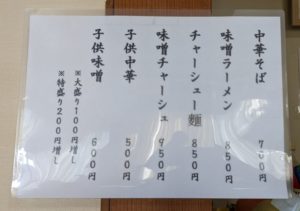 中華そば 700円
味噌ラーメン 850円
チャーシュー麵 850円
味噌チャーシュ 950円
子供中華 500円
子供味噌 600円
※大盛り100円増し
※特盛り200円増し